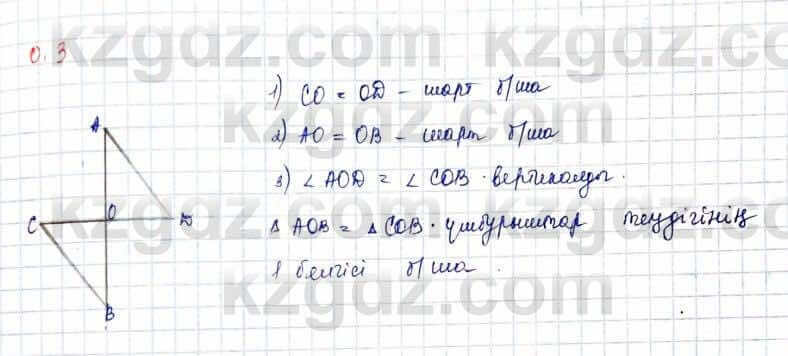 0.3
1) CO = OD - шарт б/ша
2) AO = OB - шарт б/ша
3) ∠ AOD = ∠ COB · вертикалды.
Δ AOB = Δ COB · үшбұрыштар теңдігінің
1 белгісі б/ша.
A
C
O
D
B
kzgdz.com
kzgdz.com
kzgdz.com
kzgdz.com
kzgdz.com
kzgdz.com
kzgdz.com